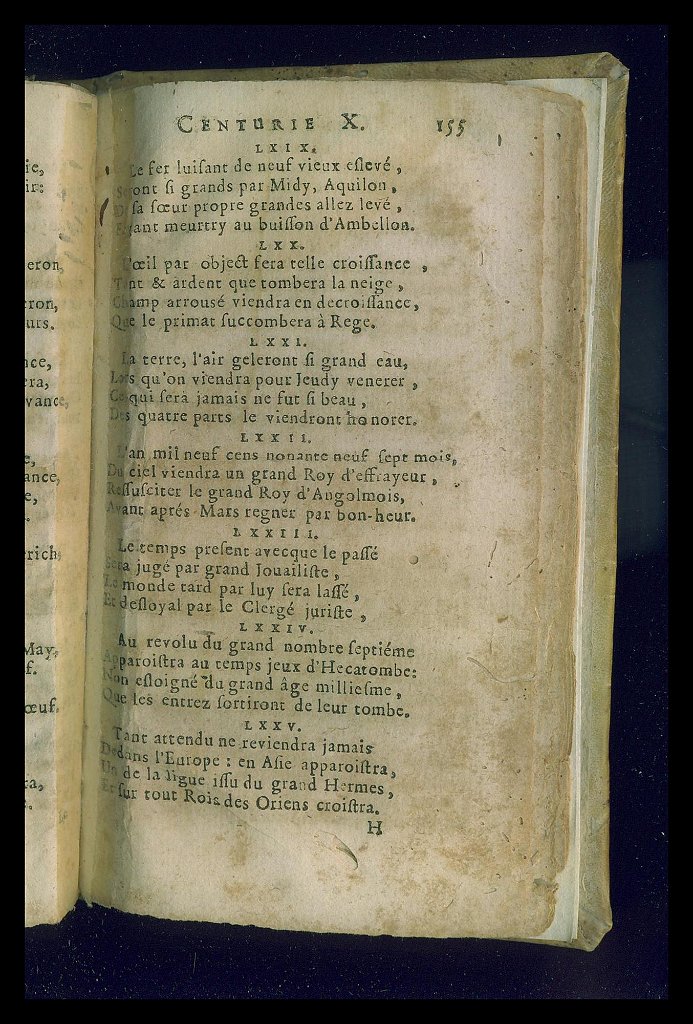 ie,
ir:
eron
ron,
urs.
ce,
ra,
vance,
e,
ance,
e,
rich
May,
f.
œuf.
ra,
CENTURIE X. 155
LXIX.
Le fer luiſant de neuf vieux eſlevé,
Seront ſi grands par Midy, Aquilon,
De ſa ſœur propre grandes allez levé,
Fuyant meurtry au buiſſon d'Ambellon.
LXX.
L'œil par object fera telle croiſſance,
Tant & ardent que tombera la neige,
Champ arrouſé viendra en decroiſſance,
Que le primat ſuccombera à Rege.
LXXI.
La terre, l'air geleront ſi grand eau,
Lors qu'on viendra pour Jeudy venerer,
Ce qui ſera jamais ne fut ſi beau,
Des quatre parts le viendront honorer.
LXXII.
L'an mil neuf cens nonante neuf ſept mois,
Du ciel viendra un grand Roy d'effrayeur,
Reſſuſciter le grand Roy d'Angolmois,
Avant aprés Mars regner par bon-heur.
LXXIII.
Le temps preſent avecque le paſſé
Sera jugé par grand Jouailiſte,
Le monde tard par luy ſera laſſé,
Et deſloyal par le Clergé juriſte,
LXXIV.
Au revolu du grand nombre ſeptiéme
Apparoiſtra au temps jeux d'Hecatombe:
Non eſloigné du grand âge millieſme,
Que les entrez ſortiront de leur tombe.
LXXV.
Tant attendu ne reviendra jamais
Dedans l'Europe : en Aſie apparoiſtra,
Un de la ligue iſſu du grand Hermes,
Et ſur tout Rois des Oriens croiſtra.
H